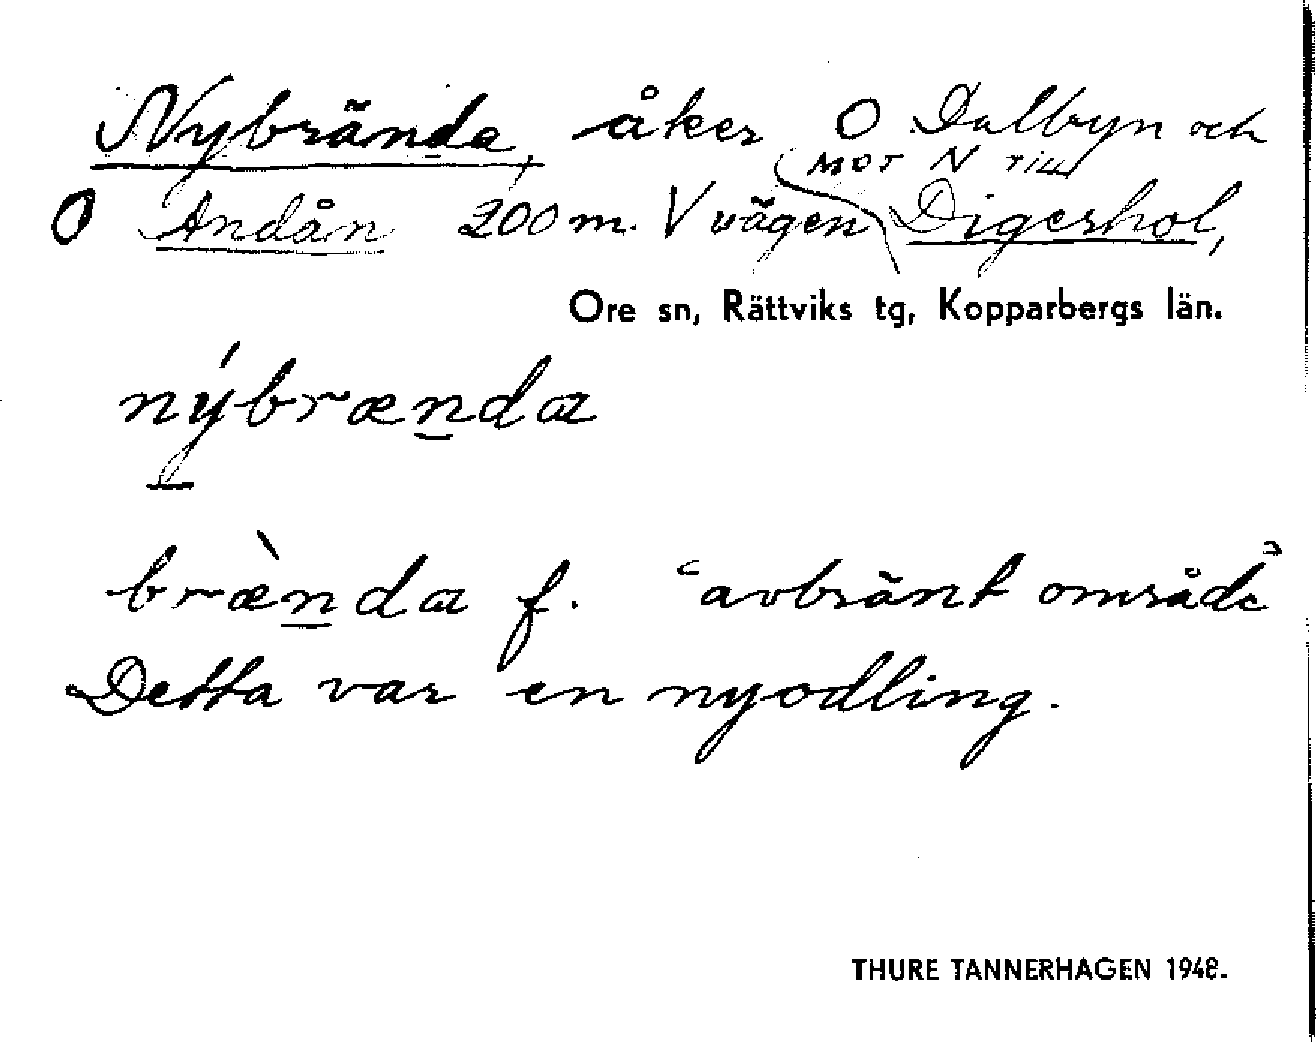 Nybrända, åker O Dalbyn och
MOT N TILL
O Andån 200 m. V vägen Digerhol,
Ore sn, Rättviks tg, Kopparbergs län.
nýbrænda
brænda f. "avbränt område"
Detta var en nyodling.
THURE TANNERHAGEN 1948.